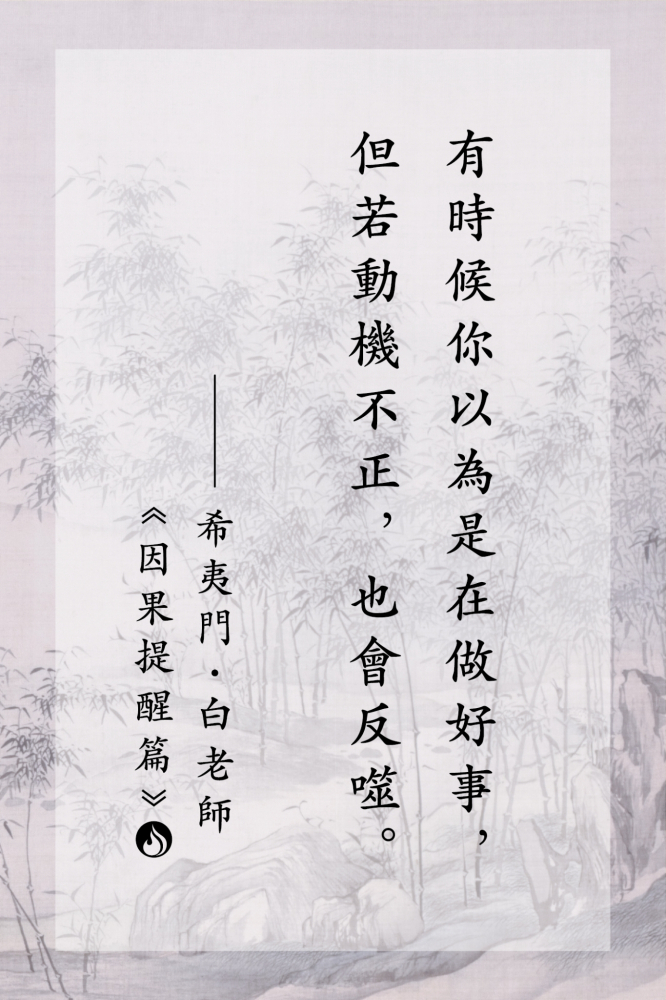 有時候你以為是在做好事，
但若動機不正，也會反噬。
——希夷門·白老師
《因果提醒篇》